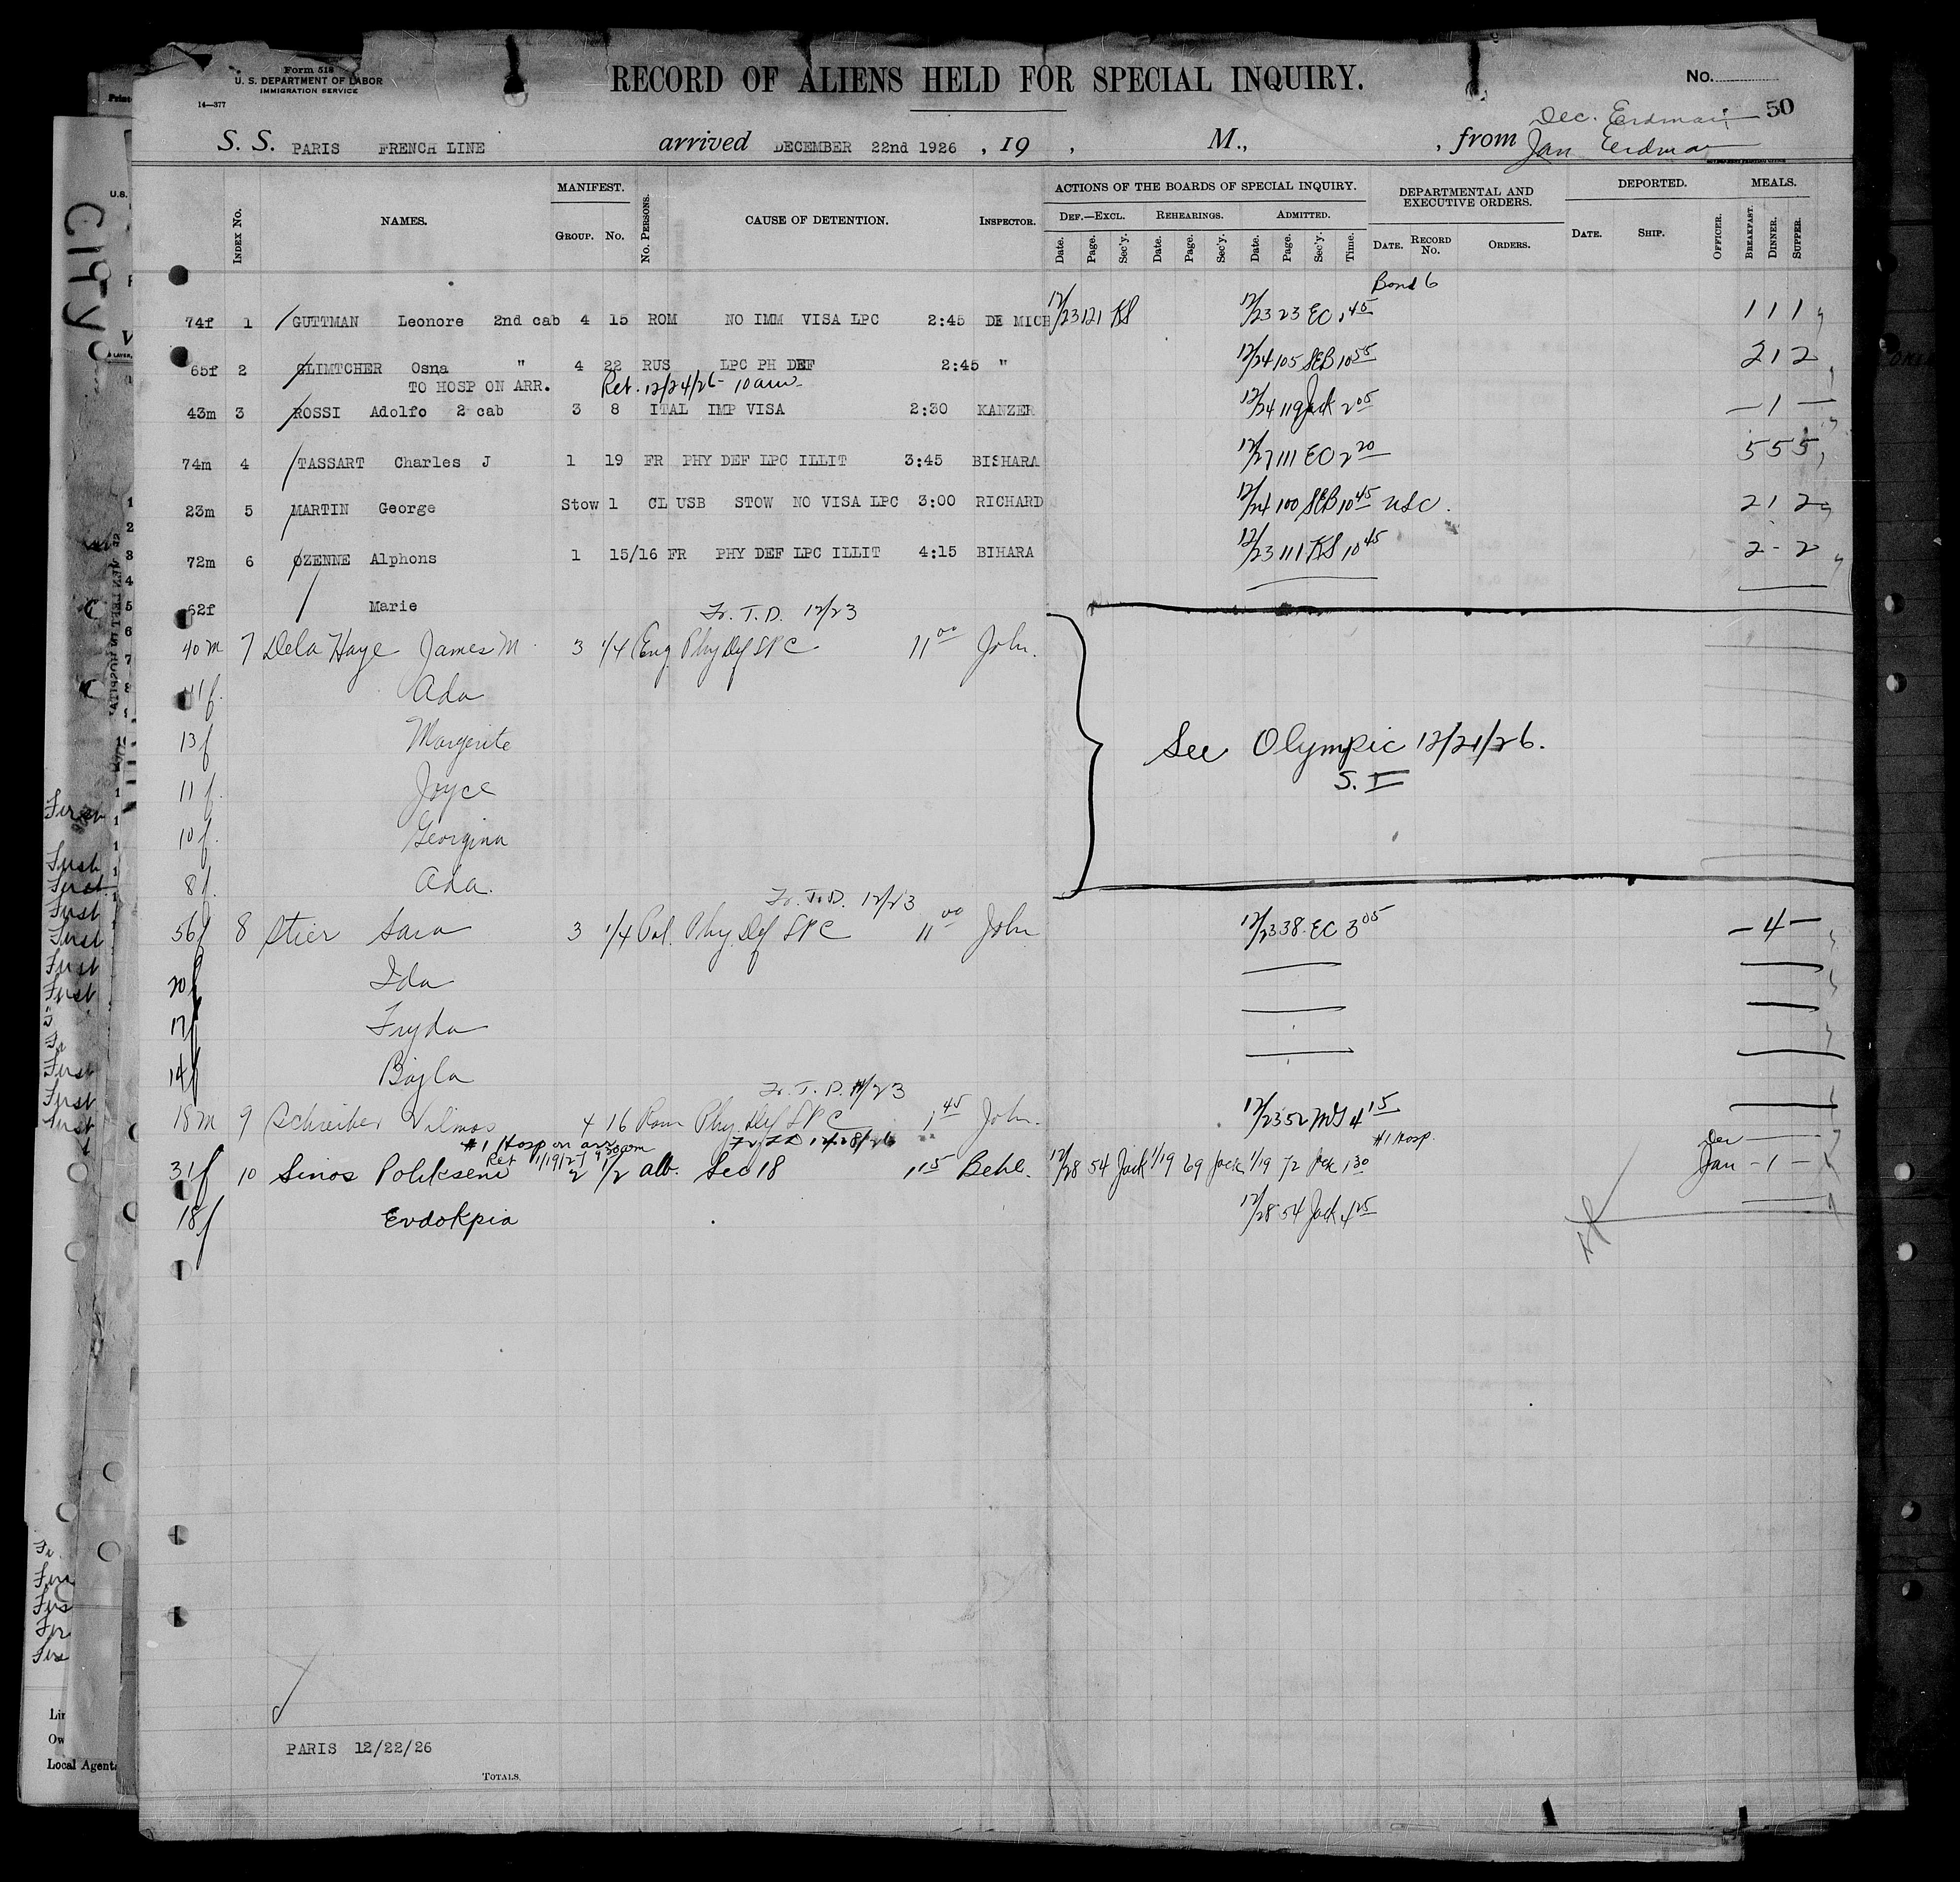 Form 518
U. S. DEPARTMENT OF LABOR
IMMIGRATION SERVICE
14—377
RECORD OF ALIENS HELD FOR SPECIAL INQUIRY.
No.
50
Dec. Erdman
S. S. PARIS FRENCH LINE arrived DECEMBER 22nd 1926 , 19 , M., , from Jan Erdman
INDEX No. NAMES. MANIFEST. GROUP. No. No. PERSONS. CAUSE OF DETENTION. INSPECTOR. ACTIONS OF THE BOARDS OF SPECIAL INQUIRY. DEF.—EXCL. Date. Page. Sec'y. REHEARINGS. Date. Page. Sec'y. ADMITTED. Date. Page. Sec'y. Time. DEPARTMENTAL AND EXECUTIVE ORDERS. DATE. RECORD No. ORDERS. DEPORTED. DATE. SHIP. OFFICER. MEALS. BREAKFAST. DINNER. SUPPER.
Bond 6
74f 1 GUTTMAN Leonore 2nd cab 4 15 ROM NO IMM VISA LPC 2:45 DE MICE 12/23 121 KS 12/23 23 EC 1 45 1 1 1
65f 2 GLIMTCHER Osna " 4 22 RUS LPC PH DEF 2:45 " 12/24 105 SEB 10 55 2 1 2
TO HOSP ON ARR. Ret. 12/24/26 - 10 am
43m 3 ROSSI Adolfo 2 cab 3 8 ITAL IMP VISA 2:30 KANZER 12/24 119 Jack 2 05 — 1 —
74m 4 TASSART Charles J 1 19 FR PHY DEF LPC ILLIT 3:45 BISHARA 12/27 111 EC 2 20 5 5 5
23m 5 MARTIN George Stow 1 CL USB STOW NO VISA LPC 3:00 RICHARD 12/24 100 SEB 10 45 USC. 2 1 2
72m 6 OZENNE Alphons 1 15/16 FR PHY DEF LPC ILLIT 4:15 BIHARA 12/23 111 KS 10 45 2 - 2
62f Marie
Fr. T. D. 12/23
40 m 7 Dela Haye James M. 3 1/4 Eng Phy Def LPC 11 00 John.
41 f. Ada
13 f Margerite
See Olympic 12/21/26.
S. I
11 f. Joyce
10 f. Georgina
8 f. Ada.
Fr. T. D. 12/23
56 f 8 Stier Sara 3 1/4 Pol. Phy. Def LPC 11 00 John 12/23 38 EC 3 05 — 4 —
20 f Ida
17 f Fryda
14 f Bajla
Fr. T. D. 12/23
18 m 9 Schreiber Vilmos 4 16 Rom Phy. Def LPC 1 45 John. 12/23 52 4 15
#1 Hosp on arr. Fr TD 12/28/26 #1 Hosp. Dec —
Ret 1/19/27 9 30 am
31 f 10 Sinos Polikseni 2 1/2 alb. Sec 18 1 15 Behl. 12/28 54 Jack 1/19 69 Jack 1/19 72 Jack 1 30 Jan — 1 —
18 f Evdokpia 12/28 54 Jack 4 25
PARIS 12/22/26
TOTALS.
City
Local Agent